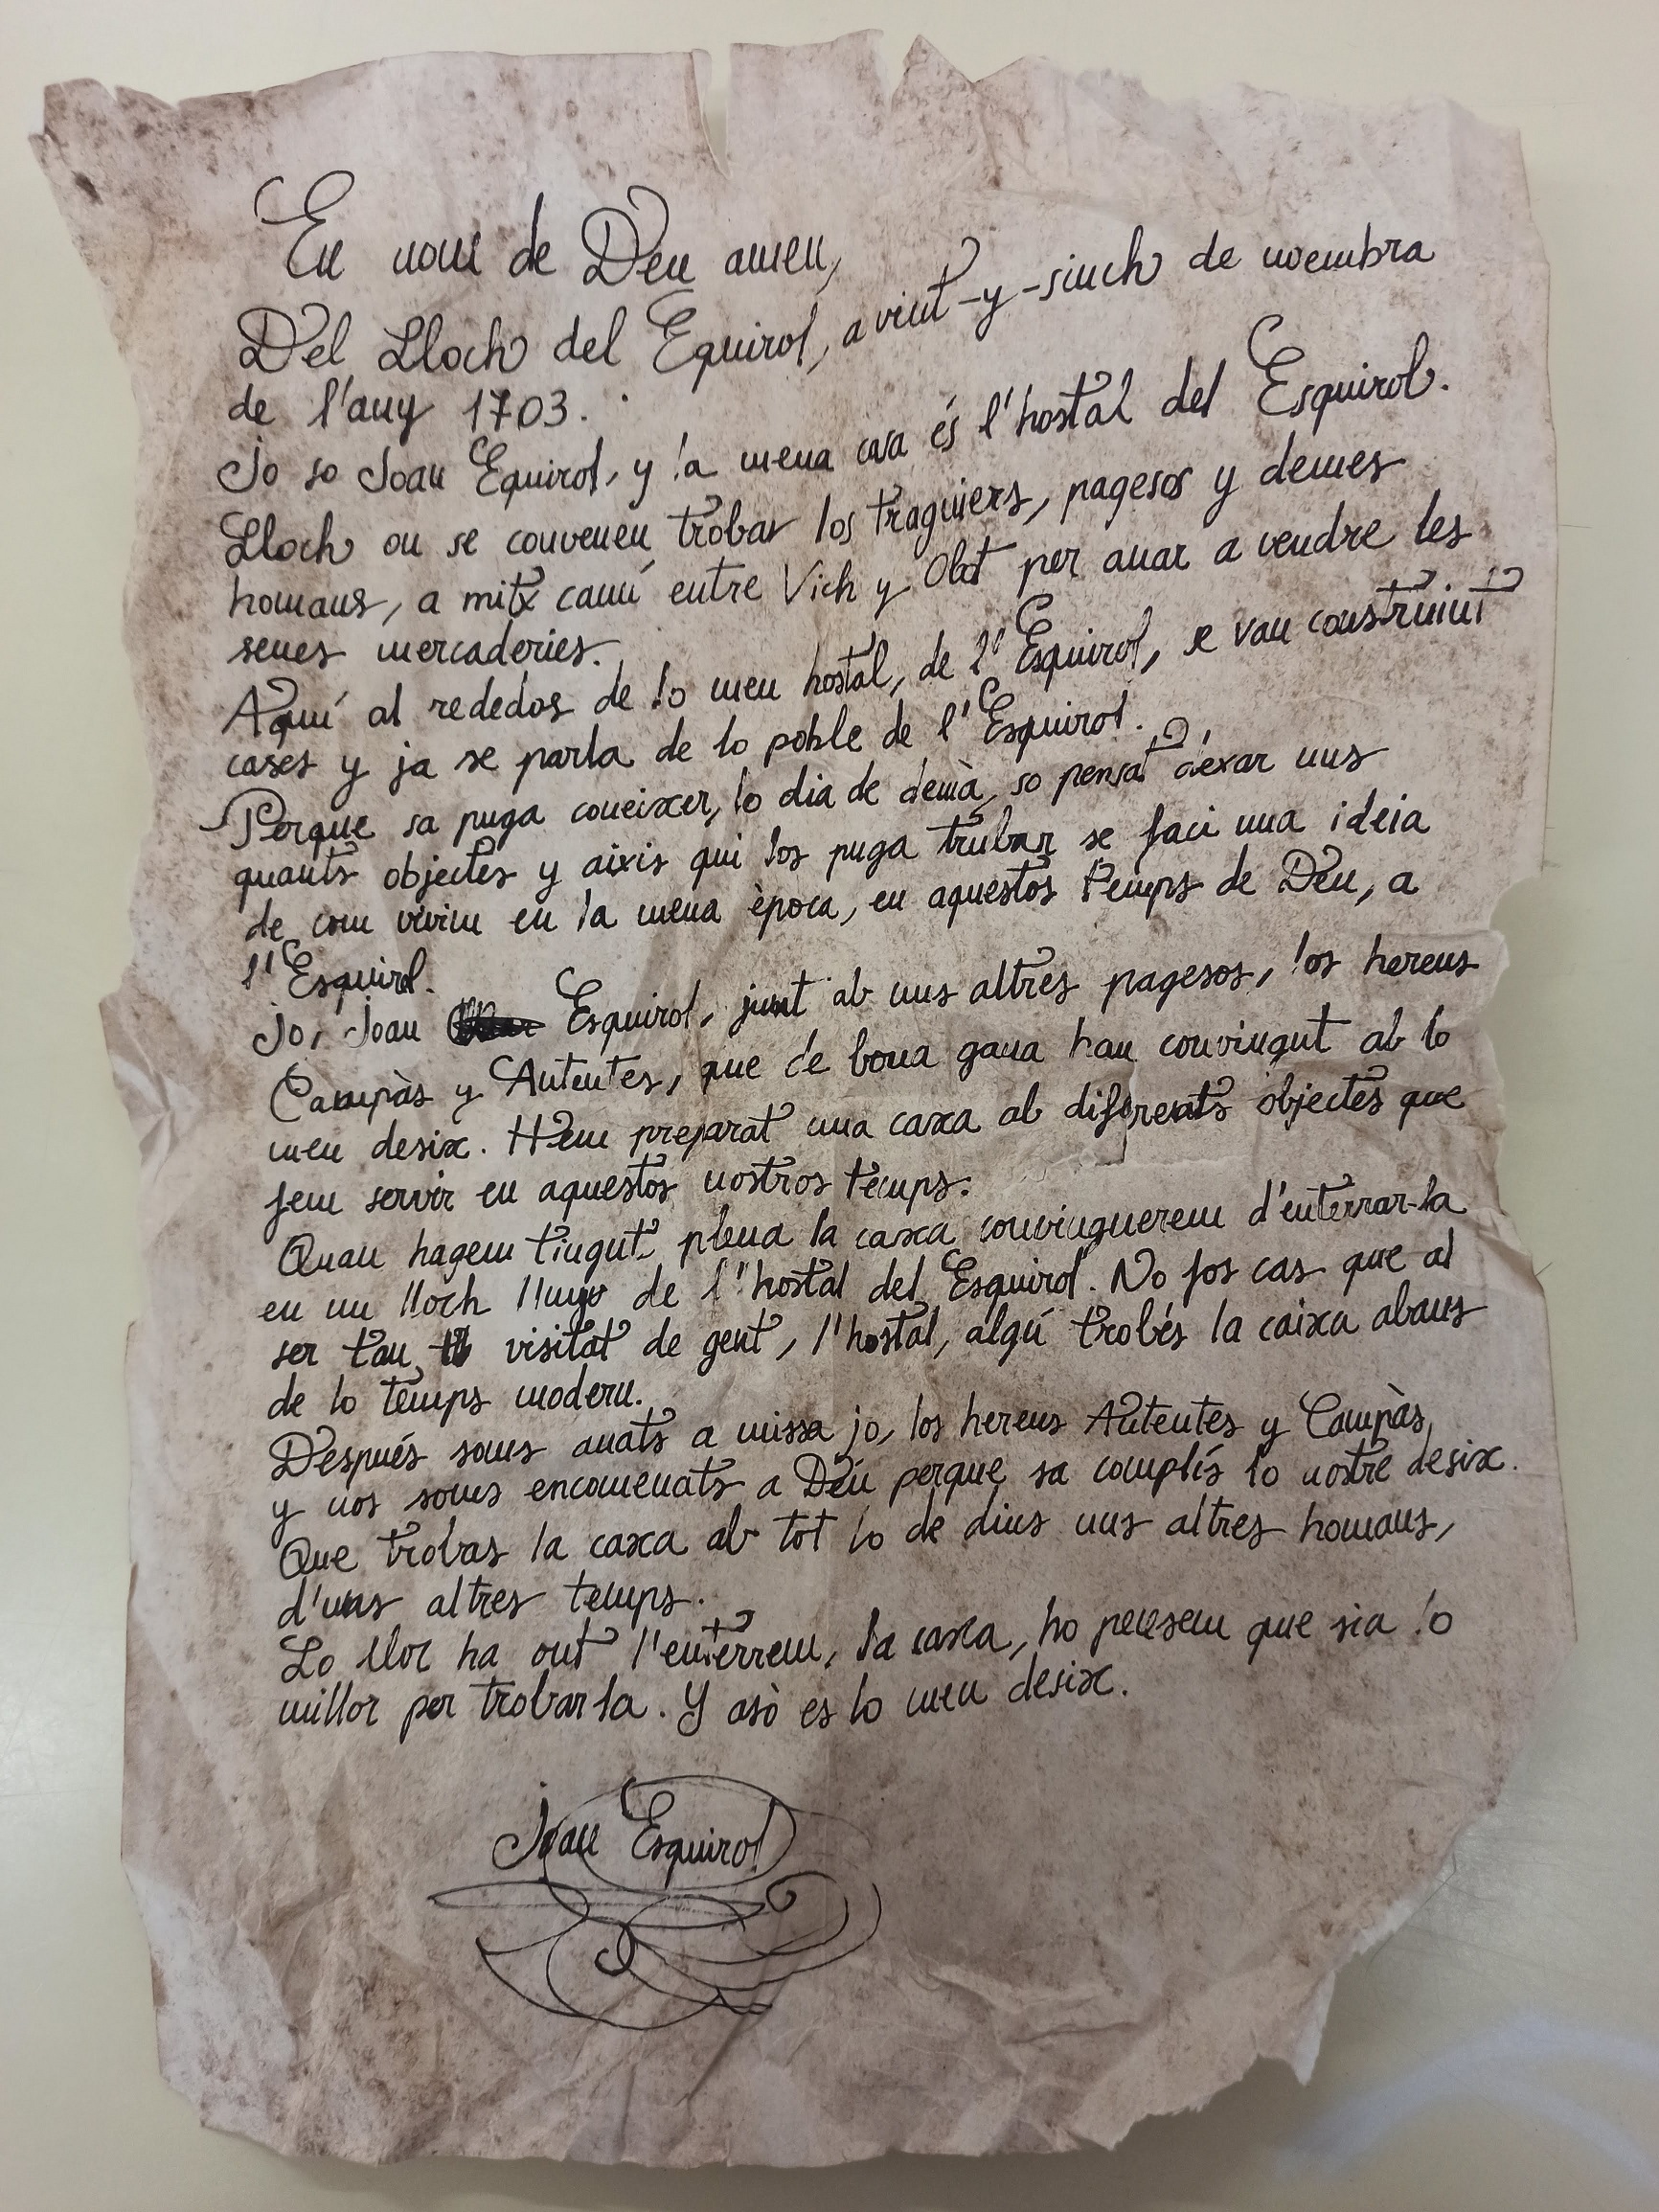 En nom de Deu amen,
Del Lloch del Equirol, a vint-y-sinch de noembra
de l'any 1703.
Jo so Joan Equirol, y la mena casa és l'hostal del Esquirol.
Lloch on se convenen trobar los traginers, pagesos y demes
homans, a mitx camí entre Vich y Olot per anar a vendre les
senes mercaderies.
Aquí al rededos de lo meu hostal, de l'Esquirol, se van construint
cases y ja se parla de lo poble de l'Esquirol.
Perque sa puga coneixer, lo dia de demà, so pensat dexar uns
quants objectes y aixis qui los puga trubar se faci una ideia
de com vivim en la mena època, en aquestos temps de Déu, a
l'Esquirol.
Jo, Joan Esquirol, junt ab uns altres pagesos, los hereus
Campàs y Autentes, que de bona gana han convingut ab lo
meu desix. Hem preparat una caxa ab diferents objectes que
fem servir en aquestos nostros temps.
Quan hagem tingut plena la caxa convinguerem d'enterrar-la
en un lloch lluny de l'hostal del Esquirol. No fos cas que al
ser tan visitat de gent, l'hostal, algú trobés la caixa abans
de lo temps modern.
Després soms anats a missa jo, los hereus Autentes y Campàs,
y nos soms encomenats a Déu perque sa complís lo nostre desix.
Que trobas la caxa ab tot lo de dins uns altres homans,
d'uns altres temps.
Lo lloc ha ont l'enterrem, la caxa, ho pensem que sia lo
millor per trobarla. Y asò es lo meu desix.
Joan Esquirol